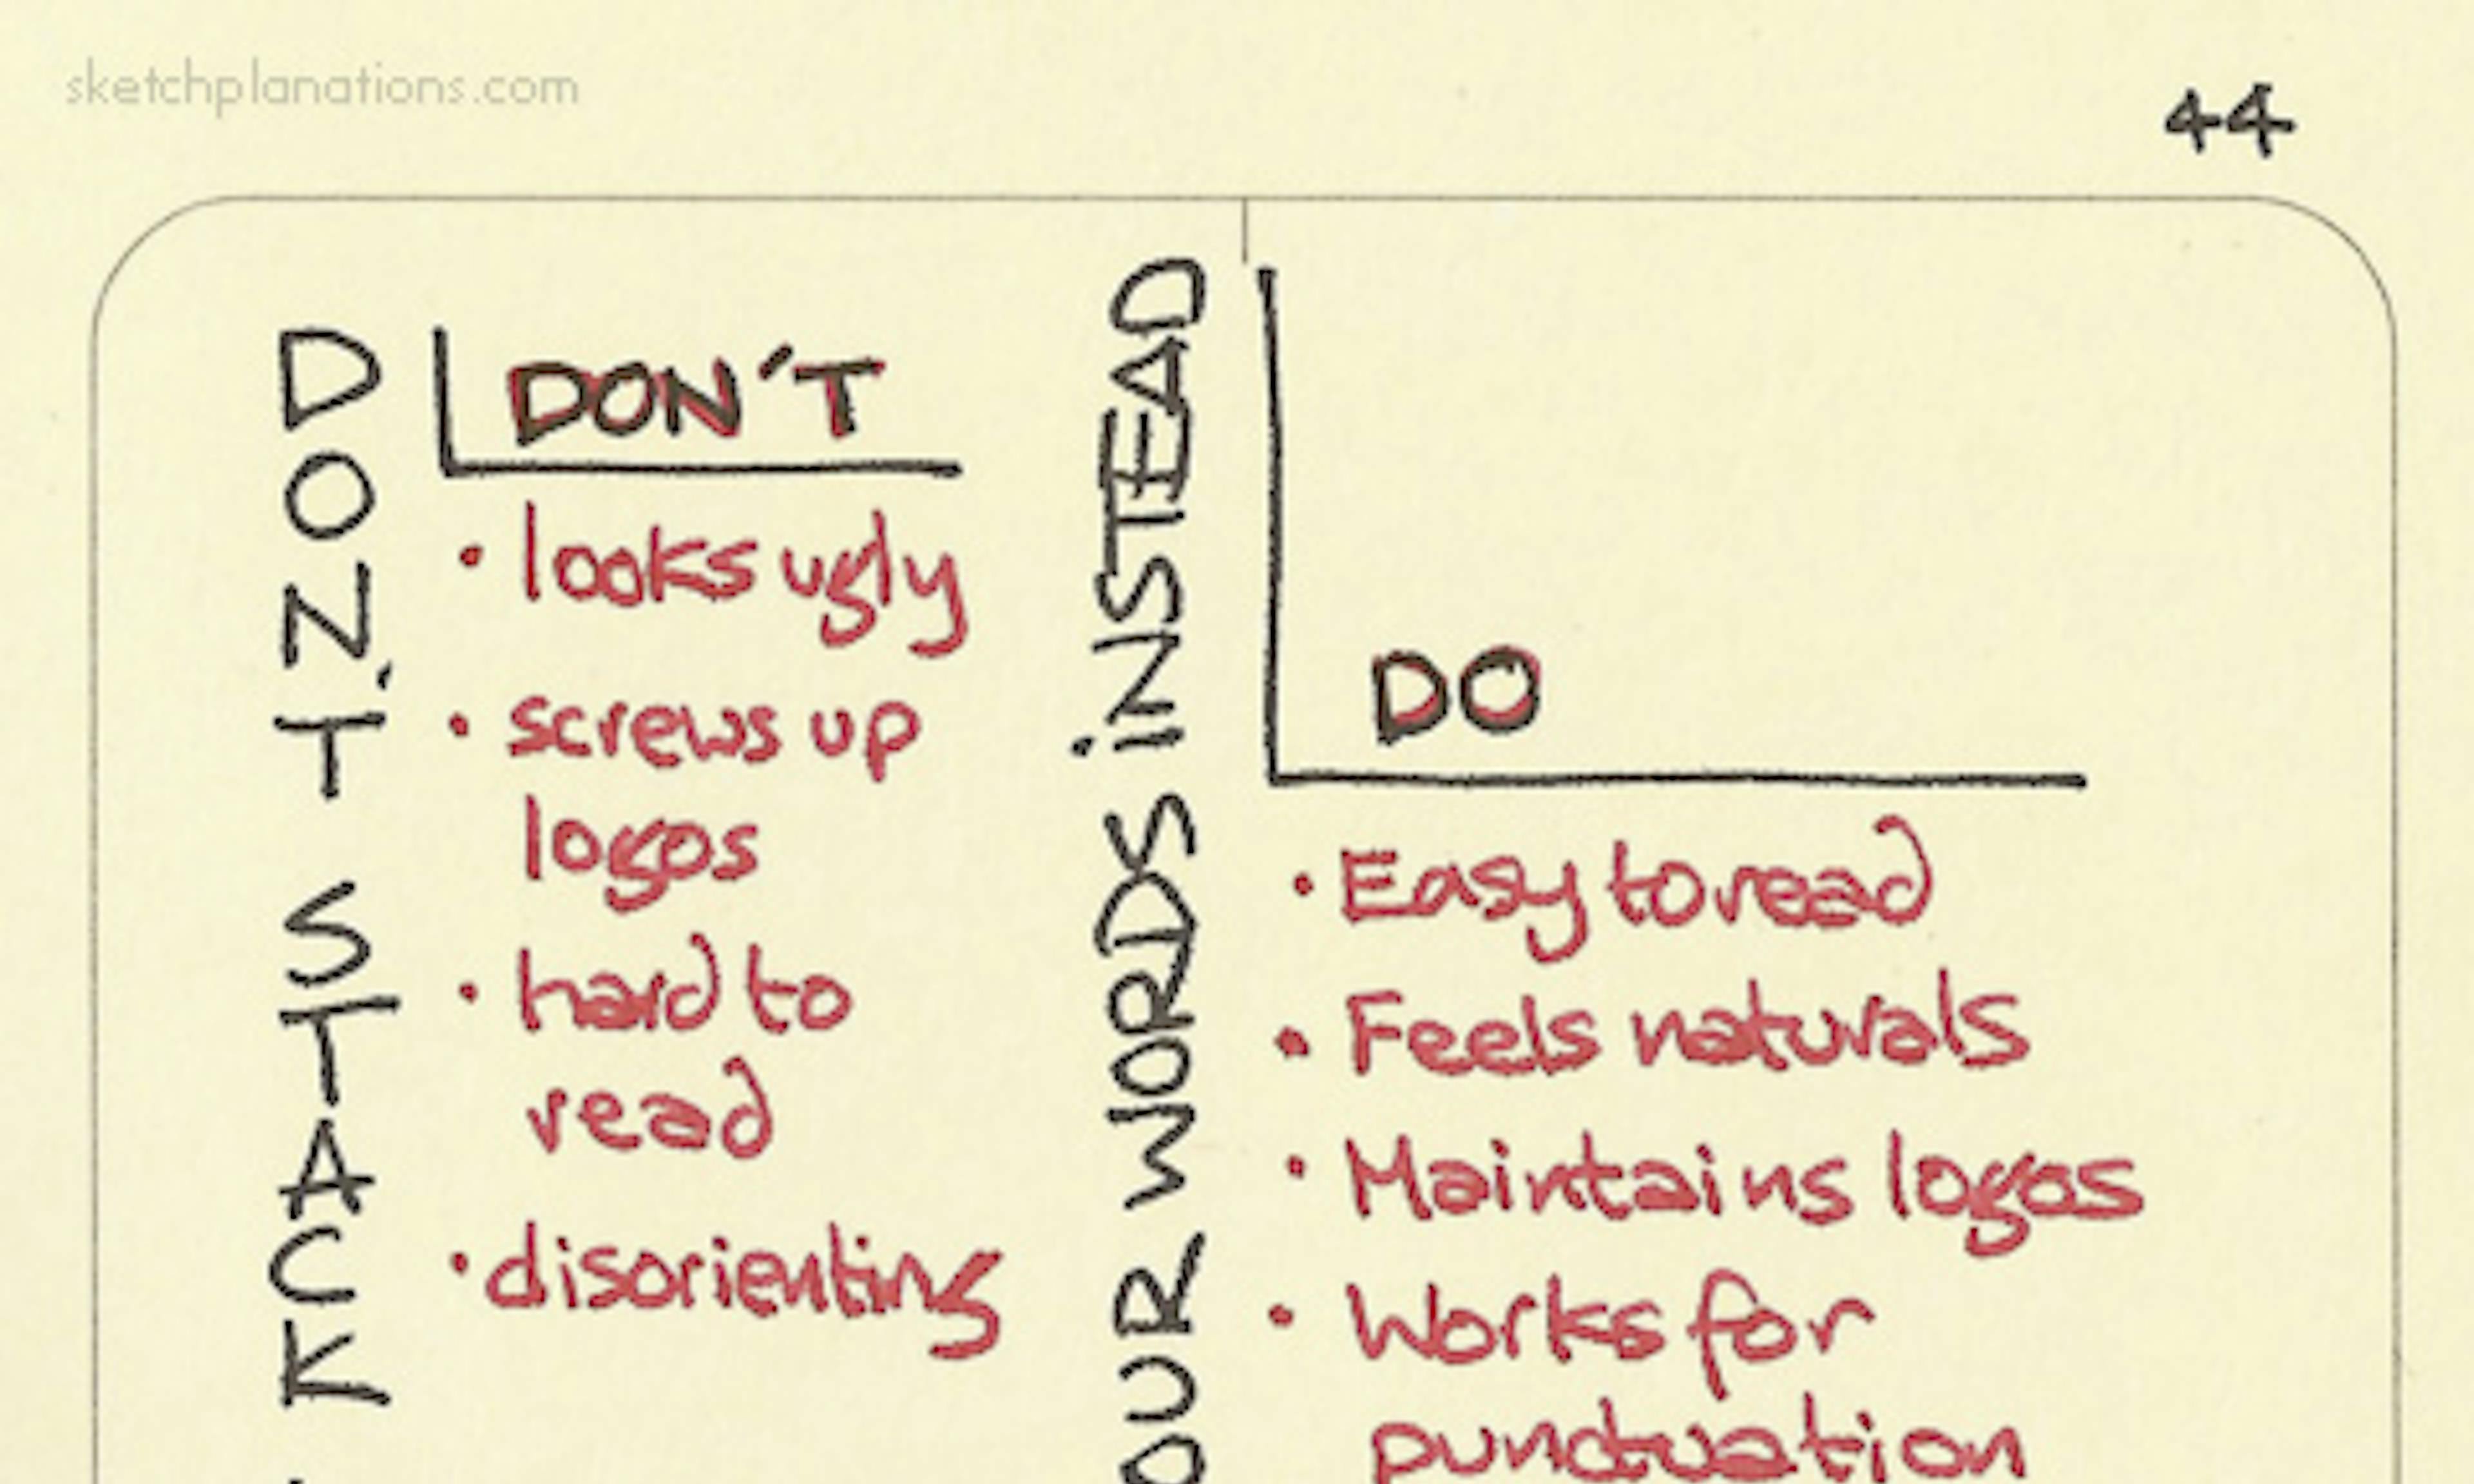 sketchplanations.com
44
DON'T STACK
DON'T
• looks ugly
• screws up
logos
• hard to
read
• disorienting
OUR WORDS iNSTEAD
DO
• Easy to read
• Feels naturals
• Maintains logos
• Works for
punctuation